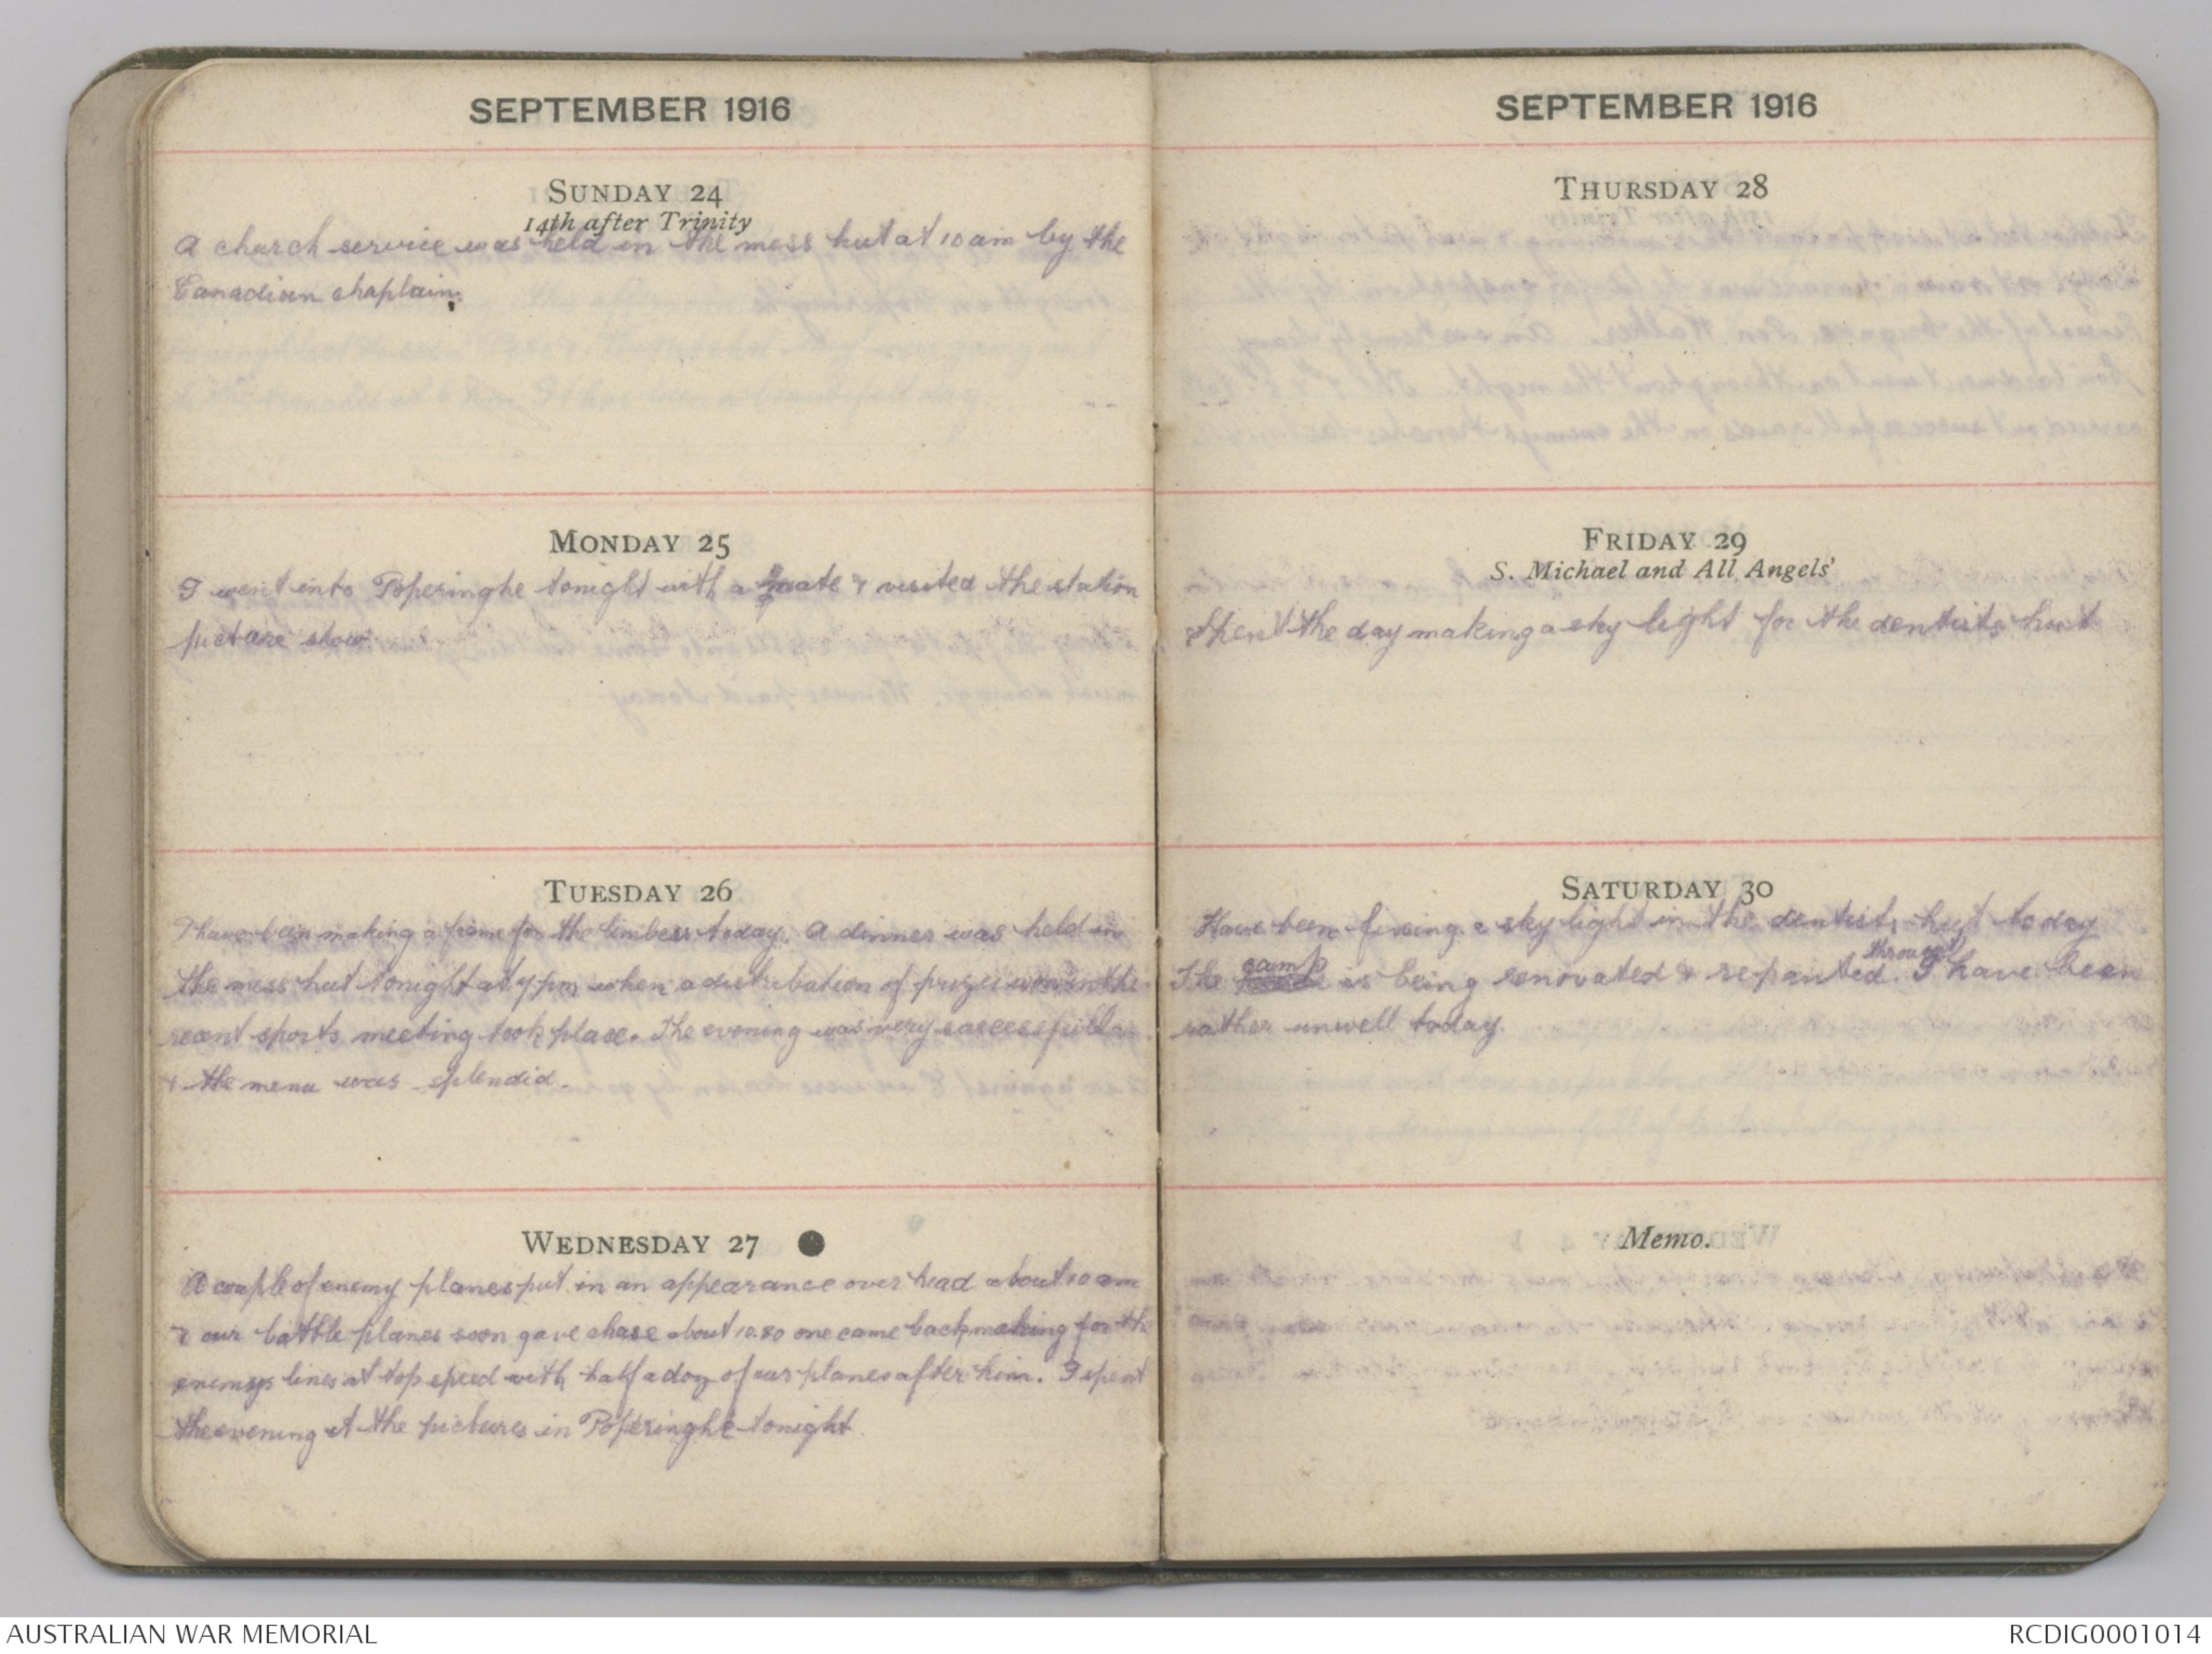 SEPTEMBER 1916
SUNDAY 24
14th after Trinity
A church service was held in the mess hut at 10 am by the
Canadian chaplain.
MONDAY 25
I went into Poperinghe tonight with a mate & visited the station
picture show.
TUESDAY 26
I have been making a frame for the timbers today. A dinner was held in
the mess hut tonight at 7 pm when a distribution of prizes won in the
recent sports meeting took place. The evening was very successfull
& the menu was splendid.
WEDNESDAY 27
A couple of enemy planes put in an appearance over head about 10 am
& our battle planes soon gave chase about 10.20 one came back making for the
enemys lines at top speed with half a doz of our planes after him. I spent
the evening at the pictures in Poperinghe tonight
SEPTEMBER 1916
THURSDAY 28
FRIDAY 29
S. Michael and All Angels'
Spent the day making a sky light for the dentists hut
SATURDAY 30
Have been fixing a sky light in the dentists hut today
The camp is being renovated & repainted throughout. I have been
rather unwell today.
Memo.
AUSTRALIAN WAR MEMORIAL
RCDIG0001014